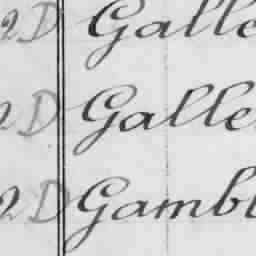 2D Galle
2D Galle
2D Gambl